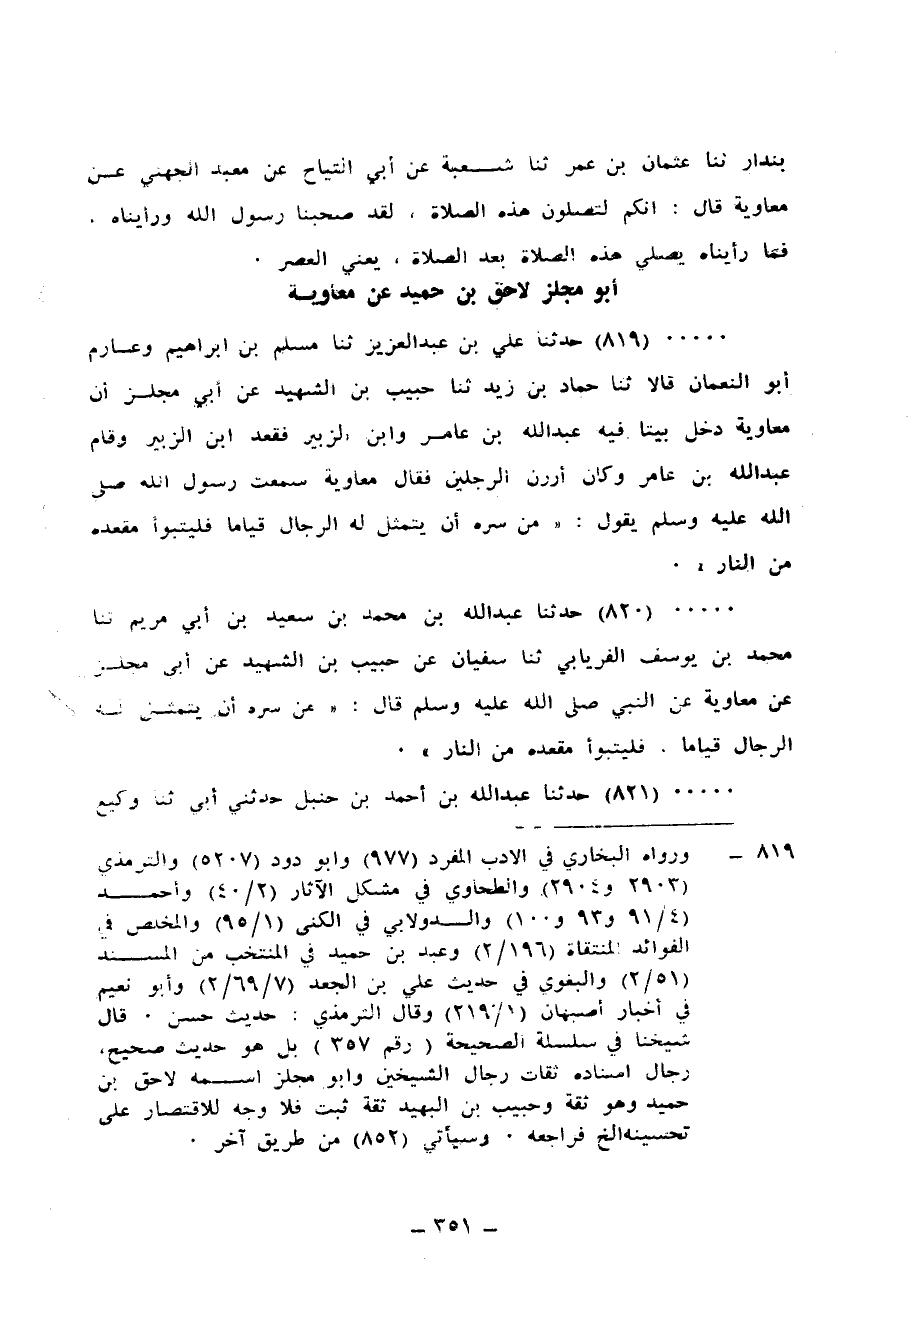 بندار ثنا عثمان بن عمر ثنا شـــعبة عن أبي التياح عن معبد الجهني عــن
معاوية قال : انكم لتصلون هذه الصلاة ، لقد صحبنا رسول الله ورأيناه .
فما رأيناه يصلي هذه الصلاة بعد الصلاة ، يعني العصر .
أبو مجلز لاحق بن حميد عن معاويــة
..... (٨١٩) حدثنا علي بن عبدالعزيز ثنا مسلم بن ابراهيم وعــارم
أبو النعمان قالا ثنا حماد بن زيد ثنا حبيب بن الشهيد عن أبي مجلــز أن
معاوية دخل بيتا فيه عبدالله بن عامــر وابن الزبير فقعد ابن الزبير وقام
عبدالله بن عامر وكان أرزن الرجلين فقال معاوية سمعت رسول الله صلى
الله عليه وسلم يقول : « من سره أن يتمثل له الرجال قياما فليتبوأ مقعده
من النار » .
..... (٨٢٠) حدثنا عبدالله بن محمد بن سعيد بن أبي مريم ثنا
محمد بن يوسف الفريابي ثنا سفيان عن حبيب بن الشهيد عن أبي مجلــز
عن معاوية عن النبي صلى الله عليه وسلم قال : « من سره أن يتمثــل لــه
الرجال قياما . فليتبوأ مقعده من النار » .
..... (٨٢١) حدثنا عبدالله بن أحمد بن حنبل حدثني أبي ثنا وكيع
٨١٩ – ورواه البخاري في الادب المفرد (٩٧٧) وابو دود (٥٢٠٧) والترمذي
(٢٩٠٣ و٢٩٠٤) والطحاوي في مشكل الآثار (٤٠/٢) وأحمـــد
(٩١/٤ و٩٣ و١٠٠) والـــدولابي في الكنى (٩٥/١) والمخلص في
الفوائد المنتقاة (٢/١٩٦) وعبد بن حميد في المنتخب من المســـند
(٢/٥١) والبغوي في حديث علي بن الجعد (٢/٦٩/٧) وأبو نعيم
في أخبار أصبهان (٢١٩/١) وقال الترمذي : حديث حسن . قال
شيخنا في سلسلة الصحيحة ( رقم ٣٥٧ ) بل هو حديث صحيح،
رجال اسناده ثقات رجال الشيخين وابو مجلز اســـمه لاحق بن
حميد وهو ثقة وحبيب بن الهيد ثقة ثبت فلا وجه للاقتصار على
تحسينه الخ فراجعه . وسيأتي (٨٥٢) من طريق آخر .
– ٣٥١ –